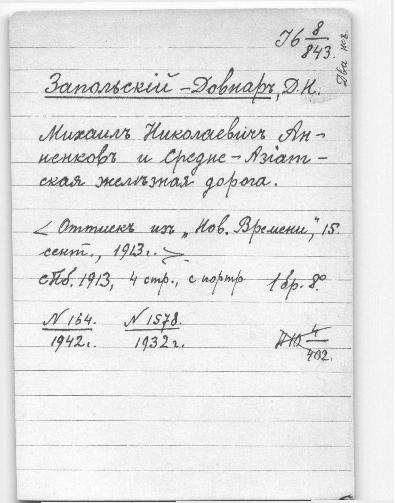 I б 8/843.
Два экз.
Запольскій-Довнаръ, Д. Н.
Михаилъ Николаевичъ Ан-
ненковъ и Средне-Азіат-
ская желѣзная дорога.
< Оттискъ изъ „Нов. Времени", 15
сент., 1913 г. >
СПб. 1913, 4 стр., с портр 1 бр. 8°
N 154. N 1578.
1942 г. 1932 г.
4/402.